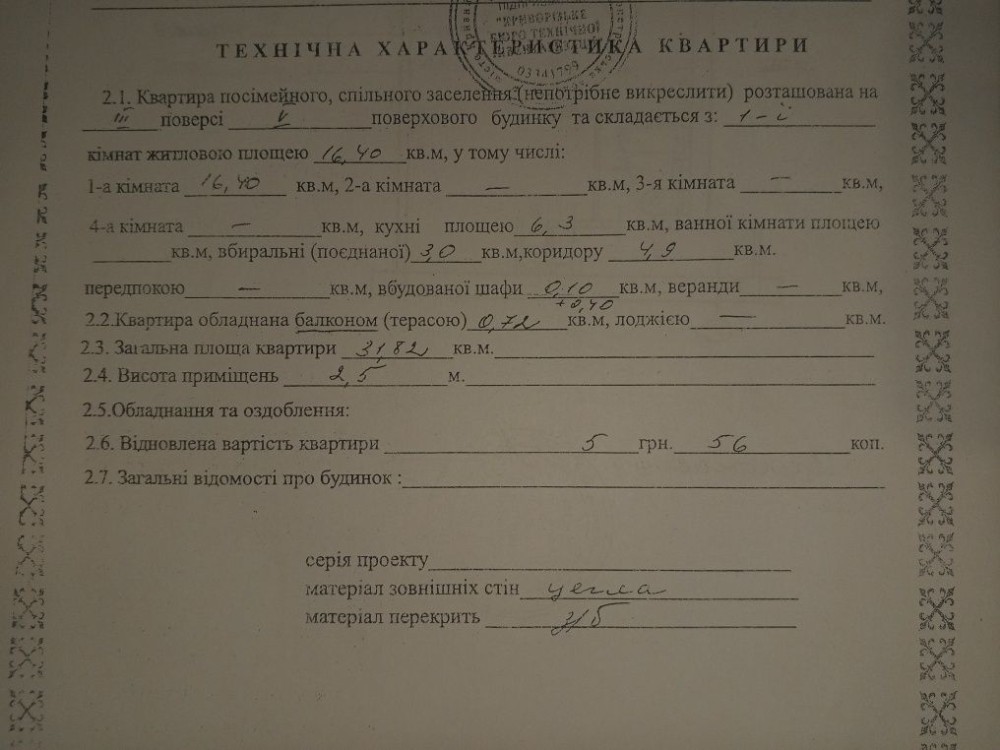 "КРИВОРІЗЬКЕ
БЮРО ТЕХНІЧНОЇ
03341799
ТЕХНІЧНА ХАРАКТЕРИСТИКА КВАРТИРИ
2.1. Квартира посімейного, спільного заселення (непотрібне викреслити) розташована на
III поверсі V поверхового будинку та складається з: 1-ї
кімнат житловою площею 16,40 кв.м, у тому числі:
1-а кімната 16,40 кв.м, 2-а кімната — кв.м, 3-я кімната — кв.м,
4-а кімната — кв.м, кухні площею 6,3 кв.м, ванної кімнати площею
кв.м, вбиральні (поєднаної) 3,0 кв.м,коридору 4,9 кв.м.
передпокою — кв.м, вбудованої шафи 0,10 кв.м, веранди — кв.м,
+0,40
2.2.Квартира обладнана балконом (терасою) 0,72 кв.м, лоджією — кв.м.
2.3. Загальна площа квартири 31,82 кв.м.
2.4. Висота приміщень 2,5 м.
2.5.Обладнання та оздоблення:
2.6. Відновлена вартість квартири 5 грн. 56 коп.
2.7. Загальні відомості про будинок :
серія проекту
матеріал зовнішніх стін цегла
матеріал перекрить з/б